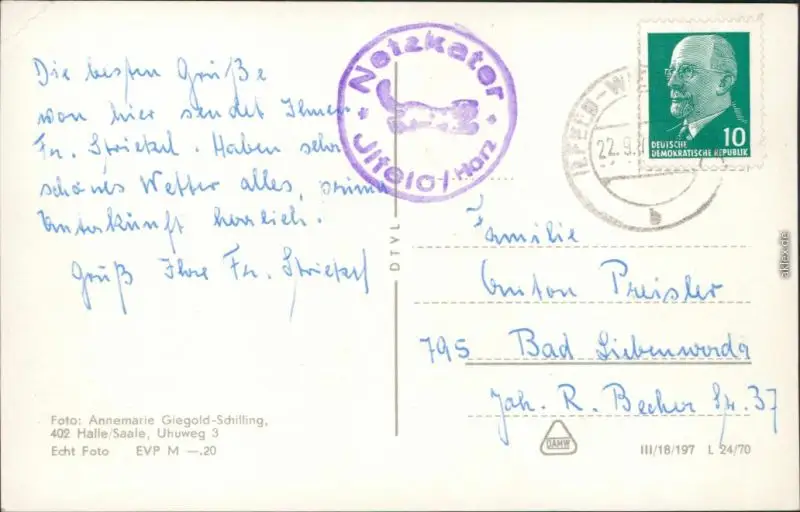 Die besten Grüße
von hier sendet Ihnen
Fr. Strietzel. Haben sehr
schönes Wetter alles prima
Unterkunft herrlich.
Gruß Ihre Fr. Strietzel
Foto: Annemarie Giegold-Schilling,
402 Halle/Saale, Uhuweg 3
Echt Foto EVP M —.20
Netzkater
Ilfeld/Harz
DTVL
22.9.
b
10
DEUTSCHE
DEMOKRATISCHE REPUBLIK
Familie
Anton Preisler
795 Bad Liebenwerda
Joh. R. Becher Str. 37
DAMW
III/18/197 L 24/70
aklex.de